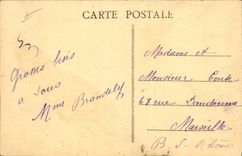 CARTE POSTALE
Grosses bises
à tous
Mme Brandely
Madame et
Monsieur Conte
68 rue
Marseille
B. d. Rhône